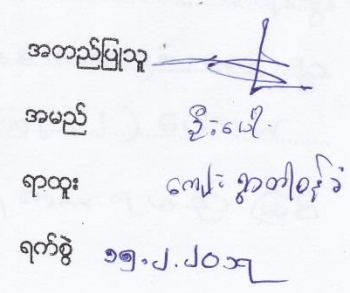 အတည်ပြုသူ
အမည် ဦးပေါ
ရာထူး ကျေးရွာတာဝန်ခံ
ရက်စွဲ ၁၅.၂.၂၀၁၇